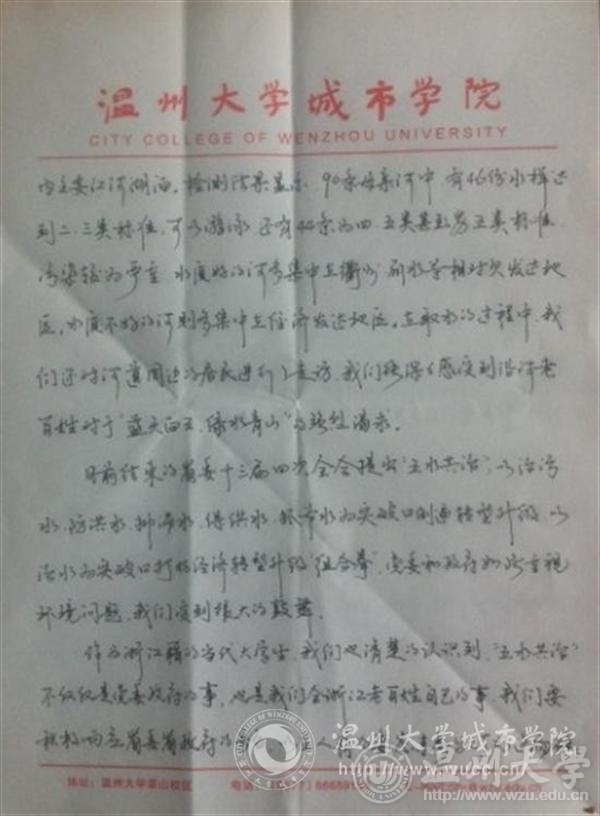 温州大学城市学院
CITY COLLEGE OF WENZHOU UNIVERSITY
内主要江河湖泊。检测结果显示，90条母亲河中，有46份水样达
到二、三类标准，可以游泳，还有44条为四、五类甚至劣五类标准，
污染较为严重，水质好的河多集中在衢州、丽水等相对欠发达地
区，水质不好的河则多集中在经济发达地区。在取水的过程中，我
们还对河道周边的居民进行了走访，我们能深深感受到沿河老
百姓对于“蓝天白云，绿水青山”的强烈渴求。
日前结束的省委十三届四次全会提出“五水共治”，以治污
水、防洪水、排涝水、保供水、抓节水为突破口倒逼转型升级，以
治水为突破口打好经济转型升级“组合拳”，党委和政府如此重视
环境问题，我们受到很大的鼓舞。
作为浙江籍的当代大学生，我们也清楚的认识到，“五水共治”
不仅仅是党委政府的事，也是我们全浙江老百姓自己的事，我们要
积极响应省委省政府的
地址：温州大学茶山校区 电话
温州大学城市学院
http://www.wucc.cn
温州大学
http://www.wzu.edu.cn